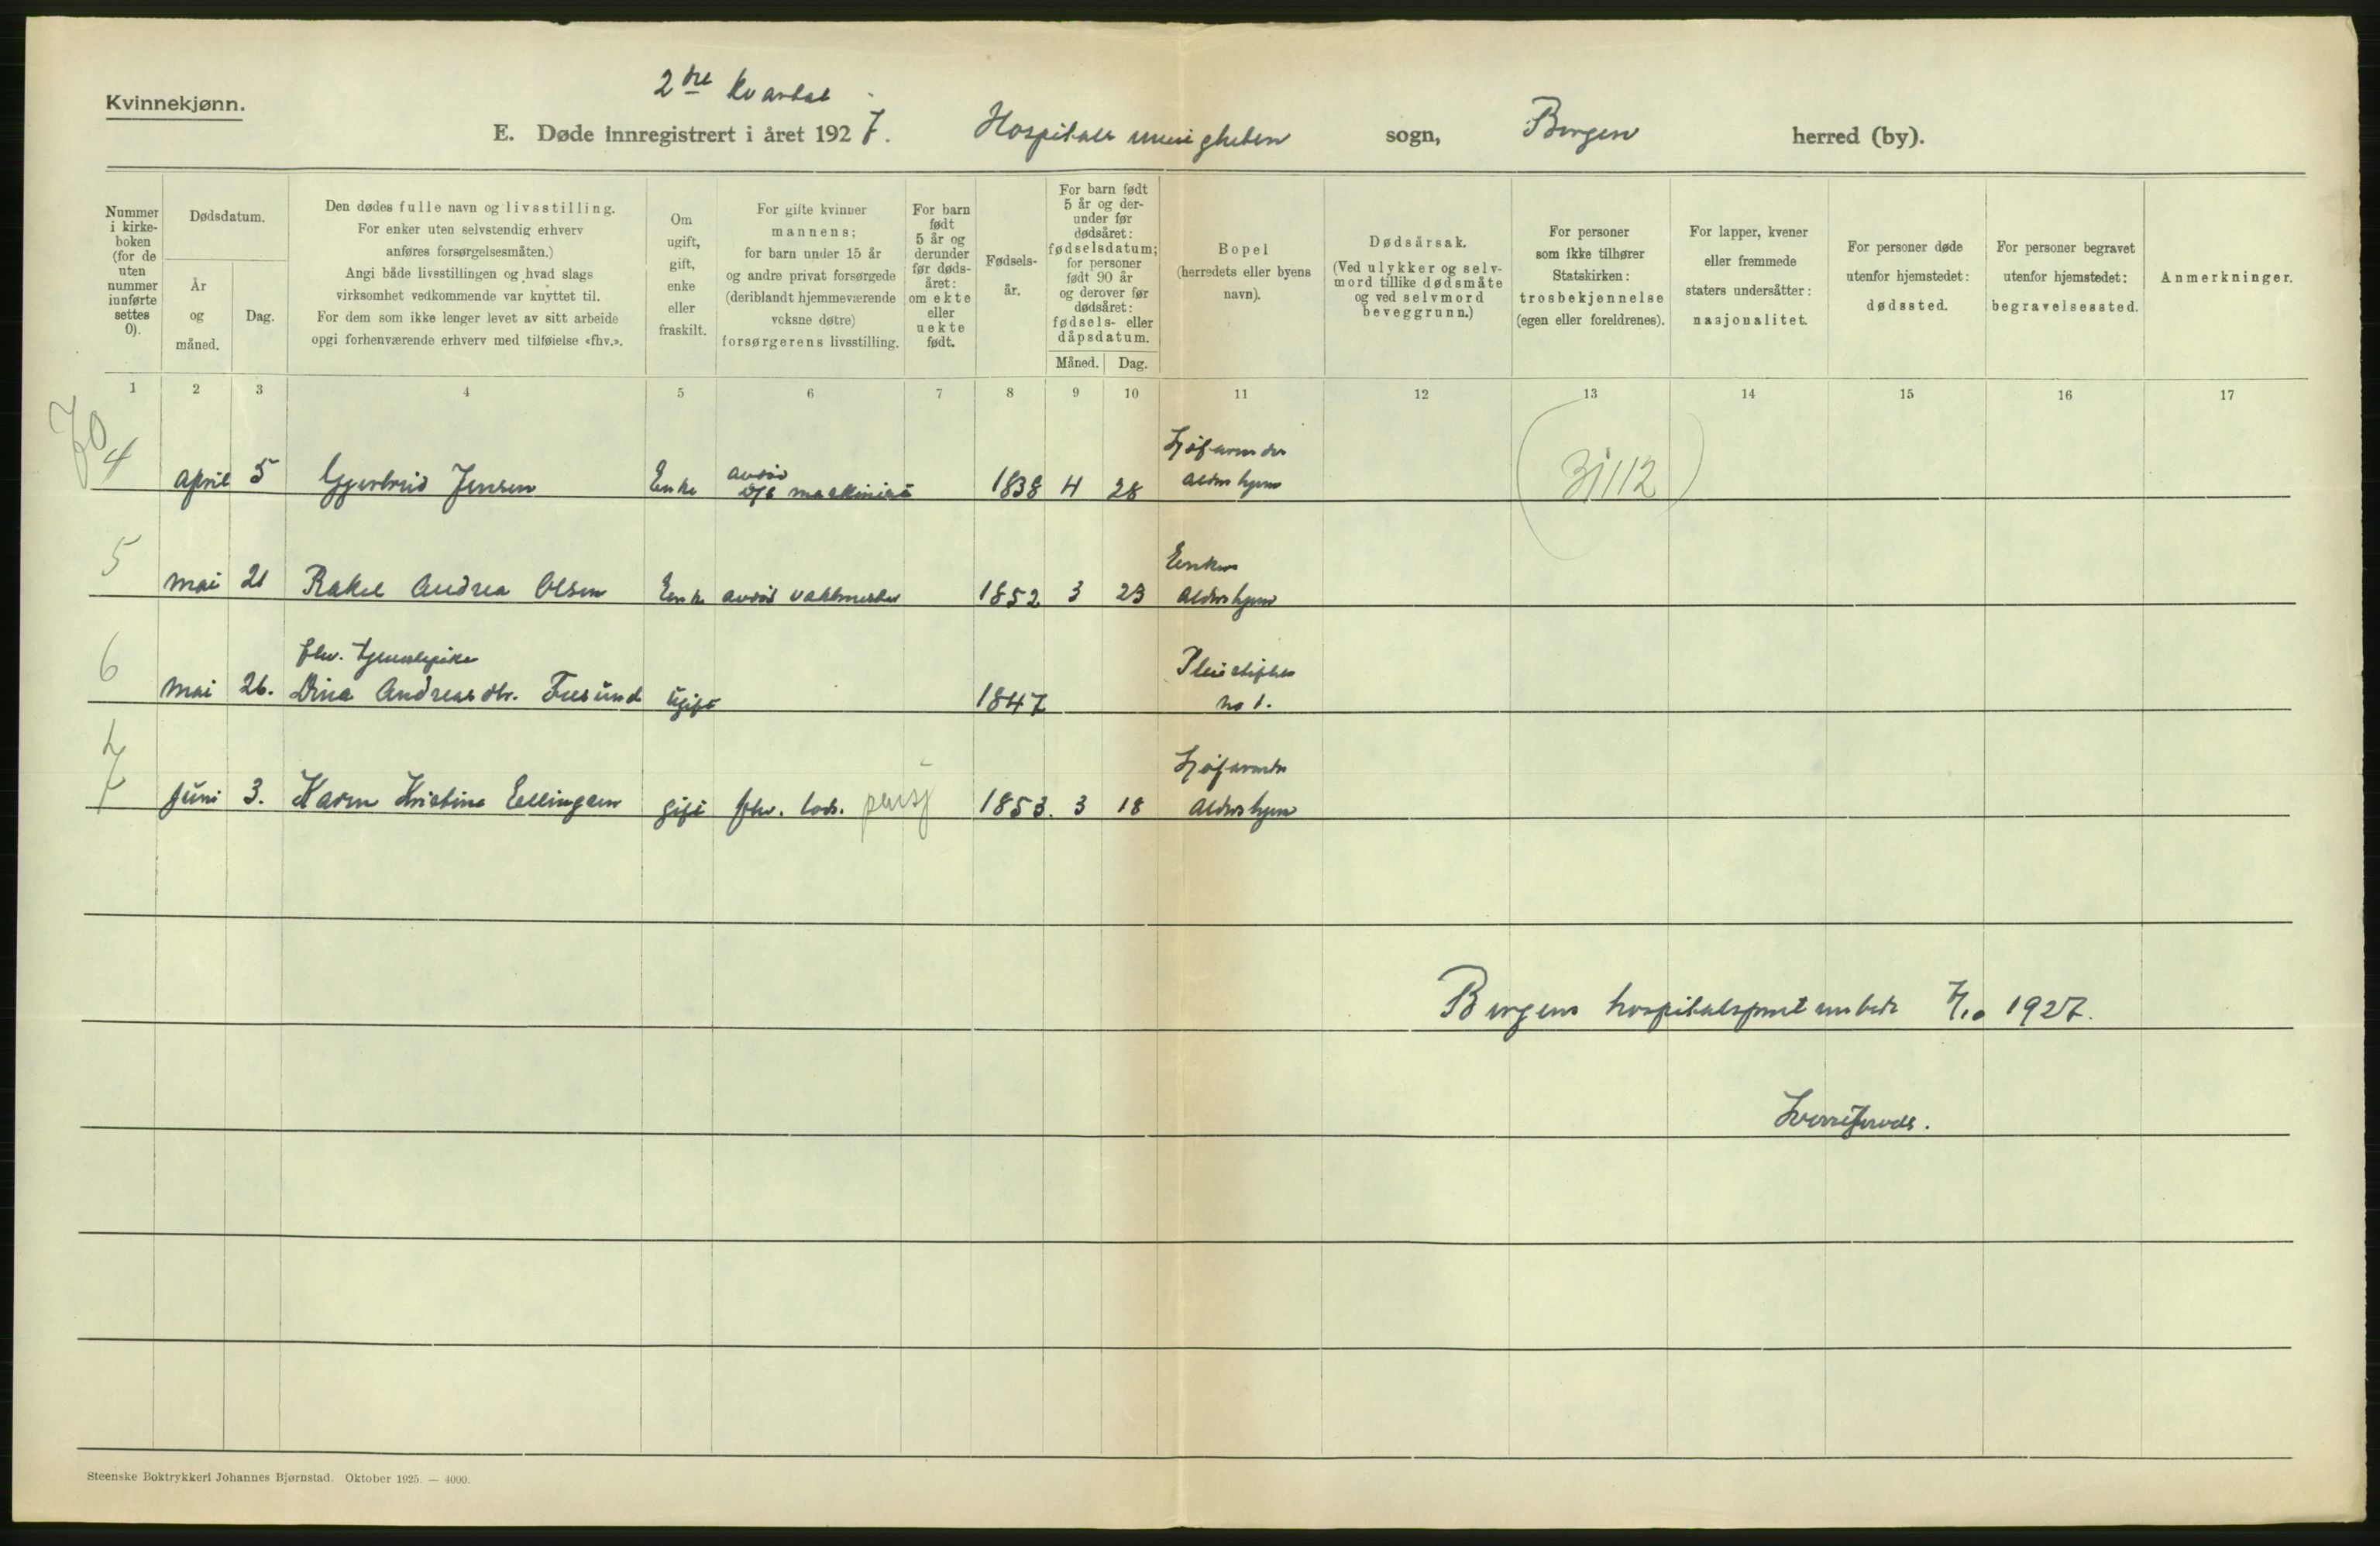 Kvinnekjønn.
2dre kvartal
E. Døde innregistrert i året 1927. Hospitals menigheten sogn, Bergen herred (by).
Nummer i kirkeboken (for de uten nummer innførte settes 0).
Dødsdatum.
År og måned.
Dag.
Den dødes fulle navn og livsstilling.
For enker uten selvstendig erhverv
anføres forsørgelsesmåten.)
Angi både livsstillingen og hvad slags
virksomhet vedkommende var knyttet til.
For dem som ikke lenger levet av sitt arbeide
opgi forhenværende erhverv med tilføielse «fhv.».
Om ugift, gift, enke eller fraskilt.
For gifte kvinner
mannens;
for barn under 15 år
og andre privat forsørgede
(deriblandt hjemmeværende
voksne døtre)
forsørgerens livsstilling.
For barn født 5 år og derunder før dødsåret: om ekte eller uekte født.
Fødselsår.
For barn født 5 år og derunder før dødsåret: fødselsdatum; for personer født 90 år og derover før dødsåret: fødsels- eller dåpsdatum.
Måned. Dag.
Bopel
(herredets eller byens
navn).
Dødsårsak.
(Ved ulykker og selvmord tillike dødsmåte og ved selvmord beveggrunn.)
For personer
som ikke tilhører
Statskirken:
trosbekjennelse
(egen eller foreldrenes).
For lapper, kvener
eller fremmede
staters undersåtter:
nasjonalitet.
For personer døde
utenfor hjemstedet:
dødssted.
For personer begravet
utenfor hjemstedet:
begravelsessted.
Anmerkninger.
1 2 3 4 5 6 7 8 9 10 11 12 13 14 15 16 17
70
4 april 5 Gjertrud Jensen Enke avdød maskinist 1838 4 28 Aldershjem
(31112)
5 mai 21 Rakel Andrea Olsen Enke avdød vaktmester 1852 3 23 Enkers Aldershjem
6 mai 26. fhv. tjenestepike
Dina Andreasdtr. ugift 1847 Pleiestiftelsen no 1.
7 juni 3. Karen Kristine Ellingsen gift fhv. lods. pensj 1853. 3 18 Aldershjem
Bergens hospitalsprestembede 7/10 1927.
Steenske Boktrykkeri Johannes Bjørnstad. Oktober 1925. — 4000.